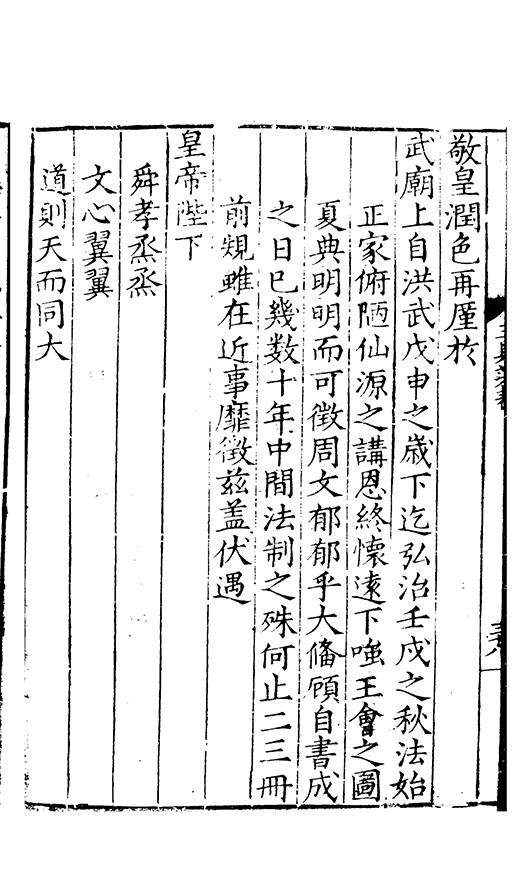 敬皇潤色再厪於
武廟上自洪武戊申之歲下迄弘治壬戌之秋法始
正家俯陋仙源之講恩終懷遠下嗤王會之圖
夏典明明而可徵周文郁郁乎大俻顧自書成
之日已幾数十年中間法制之殊何止二三冊
前䂓雖在近事靡徵兹盖伏遇
皇帝陛下
舜孝烝烝
文心翼翼
道則天而同大